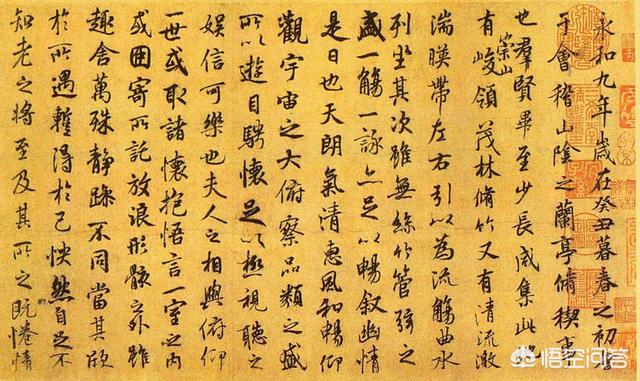 永和九年歲在癸丑暮春之初會
于會稽山陰之蘭亭脩稧事
也羣賢畢至少長咸集此地
有崇山峻領茂林脩竹又有清流激
湍暎帶左右引以為流觴曲水
列坐其次雖無絲竹管弦之
盛一觴一詠亦足以暢敘幽情
是日也天朗氣清惠風和暢仰
觀宇宙之大俯察品類之盛
所以遊目騁懷足以極視聽之
娛信可樂也夫人之相與俯仰
一世或取諸懷抱悟言一室之內
或因寄所託放浪形骸之外雖
趣舍萬殊靜躁不同當其欣
於所遇蹔得於己怏然自足不
知老之將至及其所之既惓情
悟空问答